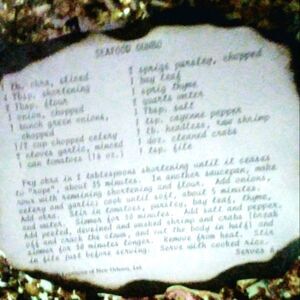 SEAFOOD GUMBO
1 lb. okra, sliced
4 Tbsp. shortening
2 Tbsp. flour
1 onion, chopped
1 bunch green onions, chopped
1/2 cup chopped celery
2 cloves garlic, minced
1 can tomatoes (16 oz.)
2 sprigs parsley, chopped
1 bay leaf
1 sprig thyme
2 quarts water
1 Tbsp. salt
1 tsp. cayenne pepper
1 lb. headless, raw shrimp
1 doz. cleaned crabs
1 tsp. file
Fry okra in 2 tablespoons shortening until it ceases
to "rope", about 35 minutes. In another saucepan, make
roux with remaining shortening and flour. Add onions,
celery and garlic; cook until soft, about 5 minutes.
Add okra. Stir in tomatoes, parsley, bay leaf, thyme,
and water. Simmer for 30 minutes. Add salt and pepper.
Add peeled, deveined and washed shrimp and crabs (break
off and crack the claws, and cut the body in half) and
simmer for 30 minutes longer. Remove from heat. Stir
in file just before serving. Serve with cooked rice.
Serves
of New Orleans, Ltd.